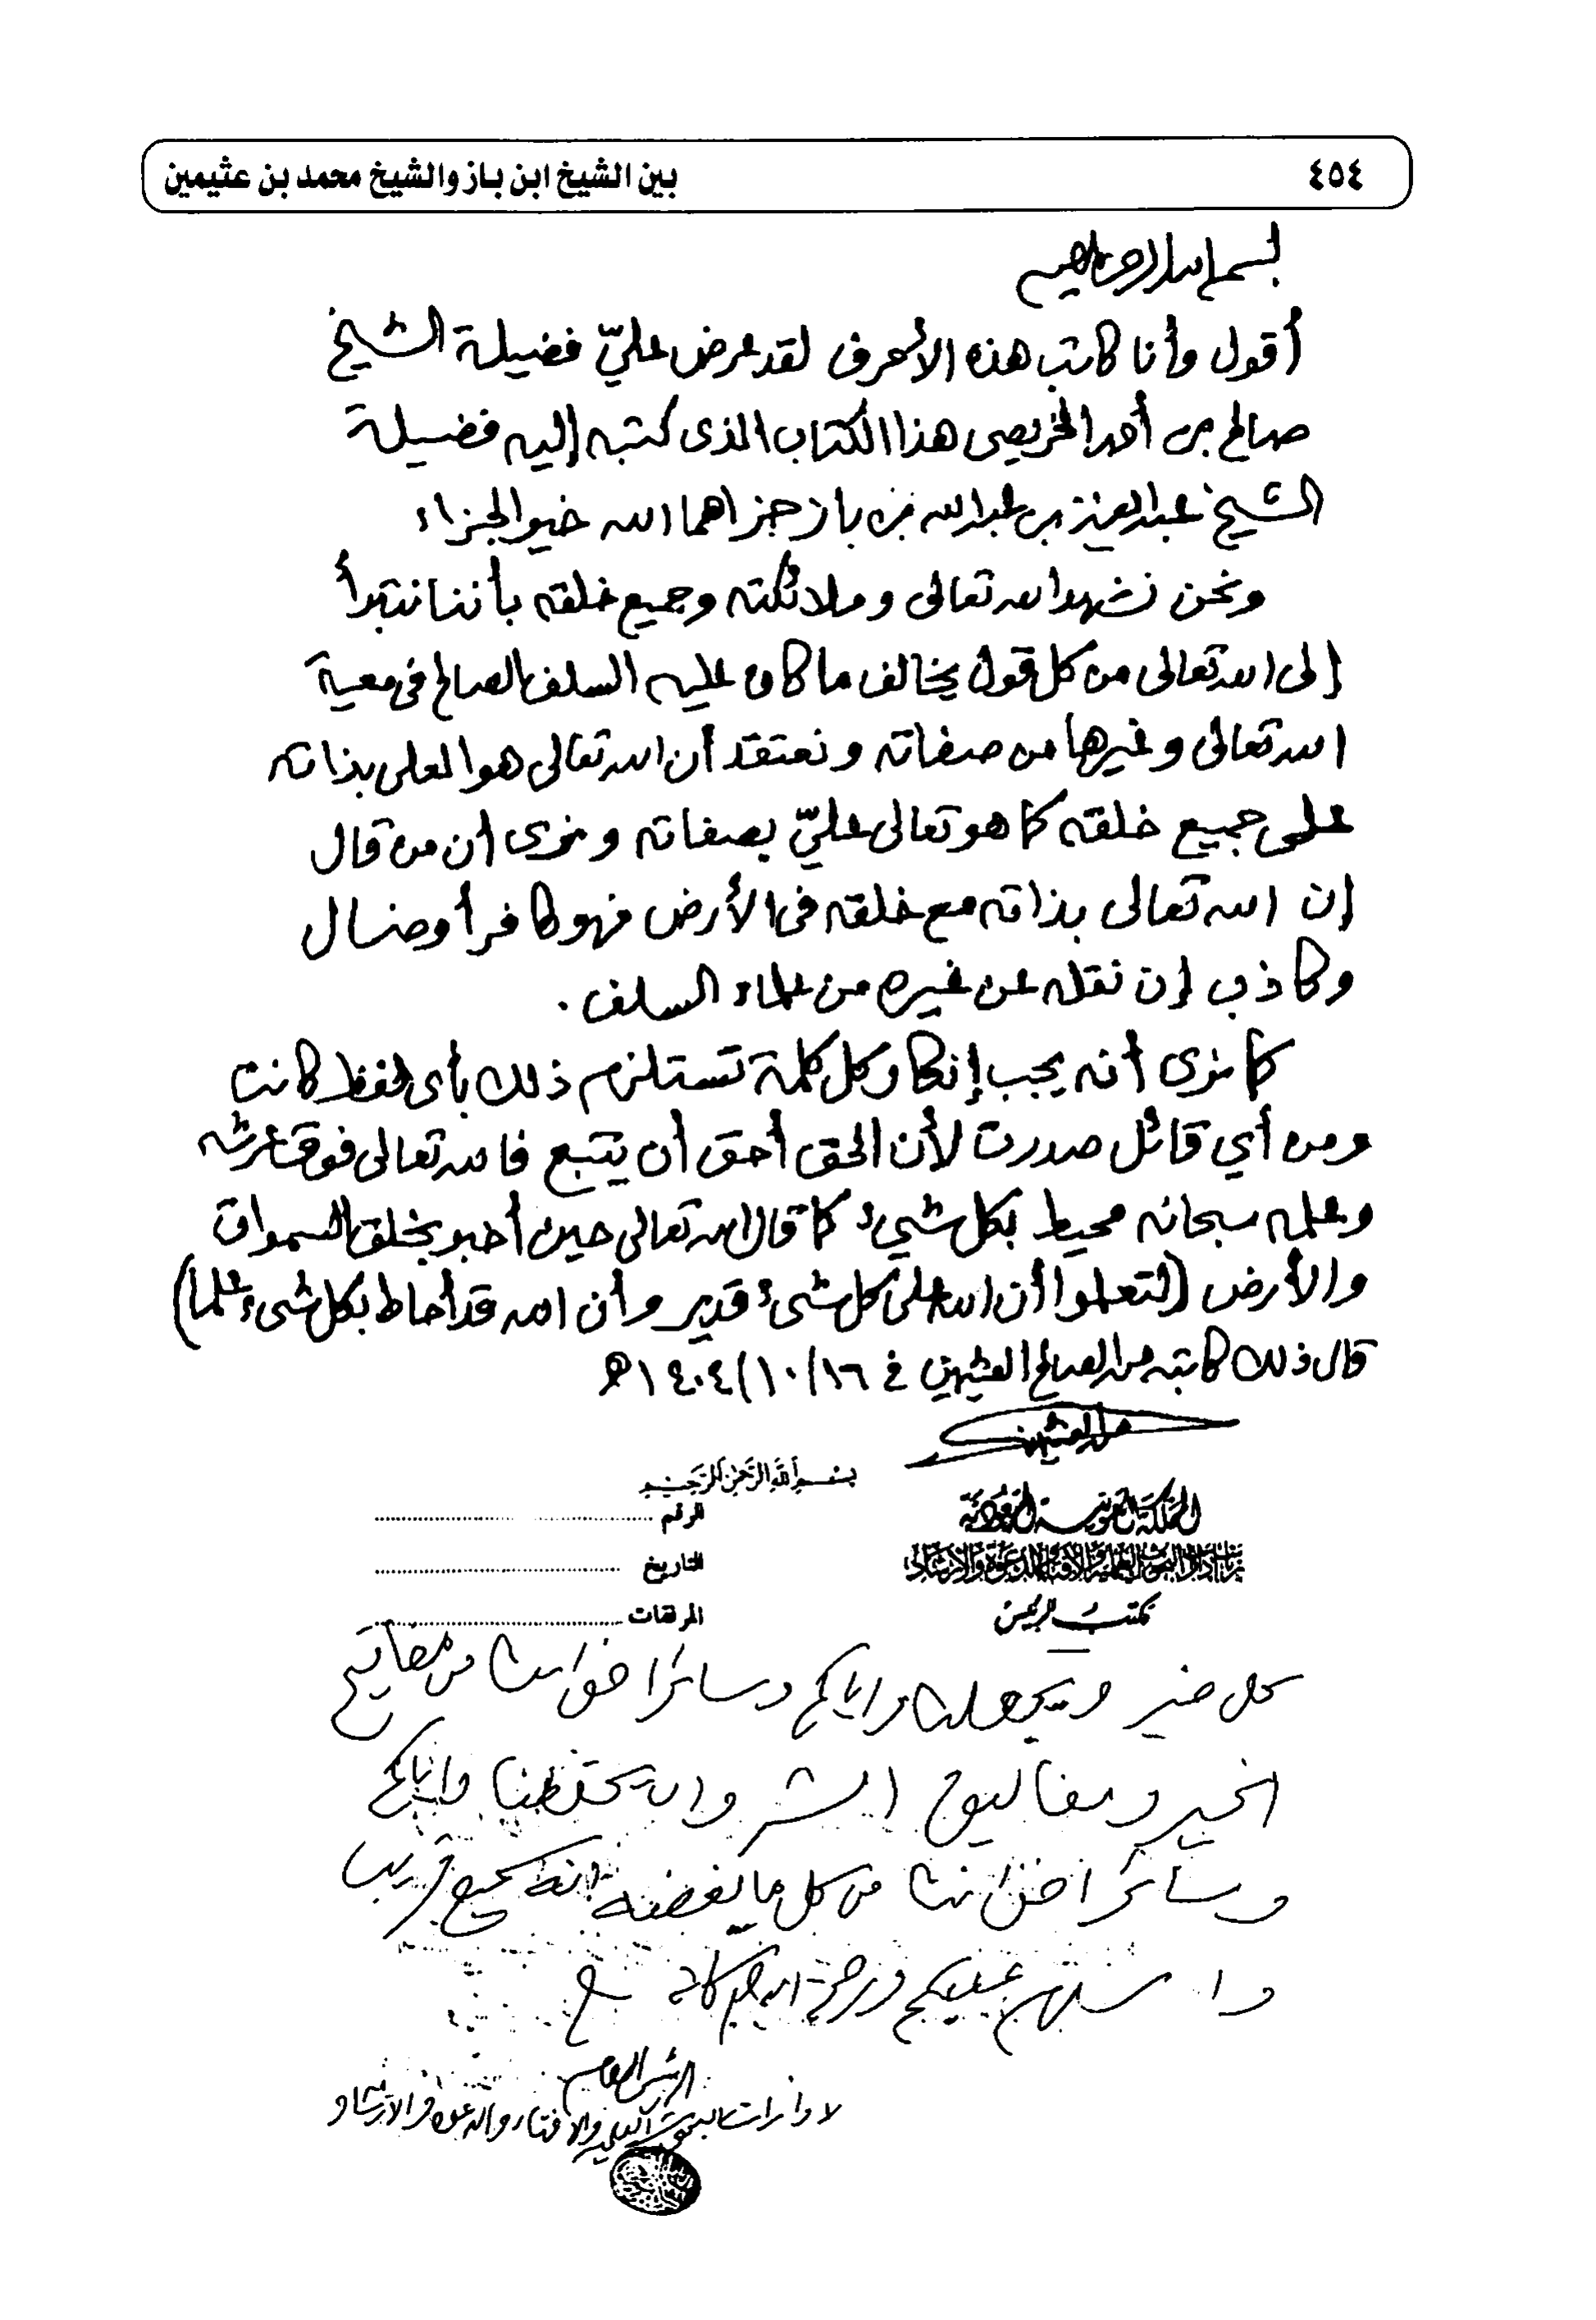 ٤٥٤
بين الشيخ ابن باز والشيخ محمد بن عثيمين
بسم الله الرحمن الرحيم
أقول وأنا كاتب هذه الأحرف لقد عرض عليّ فضيلة الشيخ
صالح بن أحمد الخريصي هذا الكتاب الذى كتبه إليه فضيلة
الشيخ عبد العزيز بن عبد الله بن باز جزاهما الله خير الجزاء
ونحن نشهد الله تعالى وملائكته وجميع خلقه بأننا نتبرأ
إلى الله تعالى من كل قول يخالف ما كان عليه السلف الصالح فى معية
الله تعالى وغيرها من صفاته ونعتقد أن الله تعالى هو العلى بذاته
على جميع خلقه كما هو تعالى عليّ بصفاته ونرى أن من قال
إن الله تعالى بذاته مع خلقه فى الأرض فهو كافر أو ضال
وكاذب إن نقله عن غيره من علماء السلف .
كما نرى أنه يجب إنكار كل كلمة تستلزم ذلك بأى لفظ كانت
ومن أي قائل صدرت لأن الحق أحق أن يتبع فالله تعالى فوق عرشه
وعلمه سبحانه محيط بكل شيء كما قال الله تعالى حين أخبر بخلق السموات
والأرض (لتعلموا أن الله على كل شىء قدير وأن الله قد أحاط بكل شىء علما)
قال ذلك كاتبه محمد الصالح العثيمين في ١٤٠٤/١٠/١٦ه
محمد العثيمين
بسم الله الرحمن الرحيم
المملكة العربية السعودية
إدارات البحوث العلمية والافتاء والدعوة والارشاد
مكتب الرئيس
الرقم
التاريخ
المرفقات
كل خير ويجعلنا واياكم وسائر اخواننا من مفاتيح
الخير ومغاليق الشر وان يحفظنا واياكم
وسائر اخواننا من كل ما يغضبه انه سميع قريب
والسلام عليكم ورحمة الله وبركاته
الرئيس العام
لادارات البحوث العلمية والافتاء والدعوة والارشاد